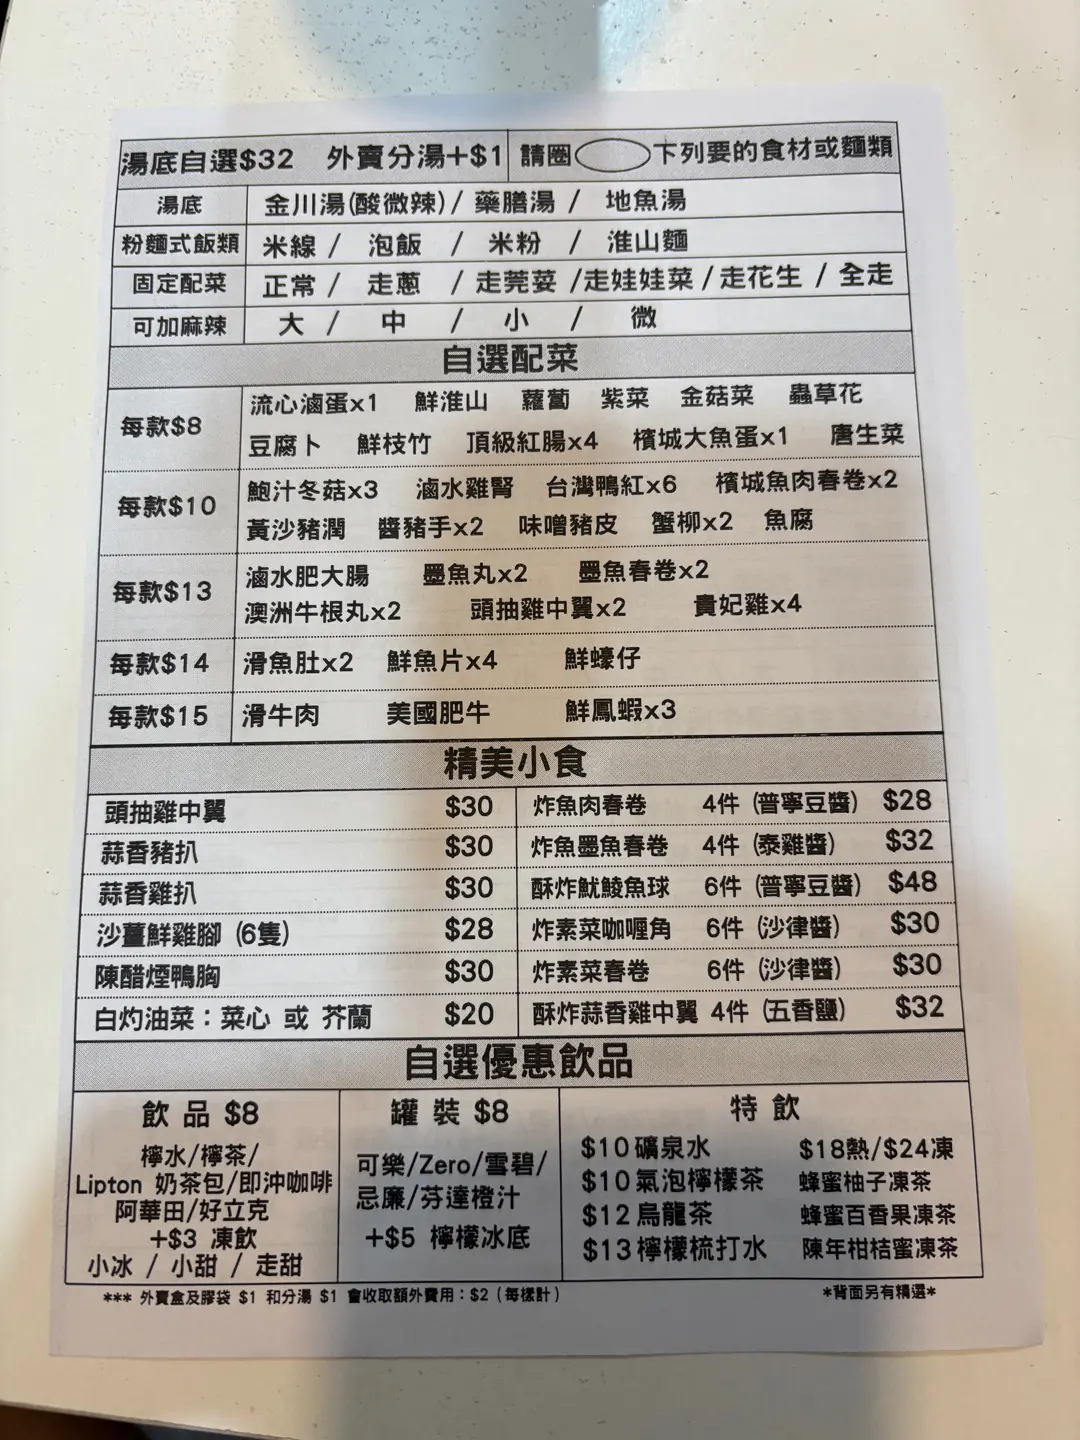 湯底自選$32 外賣分湯+$1 請圈 下列要的食材或麵類
湯底 金川湯(酸微辣)/ 藥膳湯 / 地魚湯
粉麵式飯類 米線 / 泡飯 / 米粉 / 淮山麵
固定配菜 正常 / 走蔥 / 走莞荽 /走娃娃菜 / 走花生 / 全走
可加麻辣 大 / 中 / 小 / 微
自選配菜
每款$8 流心滷蛋x1 鮮淮山 蘿蔔 紫菜 金菇菜 蟲草花
豆腐卜 鮮枝竹 頂級紅腸x4 檳城大魚蛋x1 唐生菜
每款$10 鮑汁冬菇x3 滷水雞腎 台灣鴨紅x6 檳城魚肉春卷x2
黃沙豬潤 醬豬手x2 味噌豬皮 蟹柳x2 魚腐
每款$13 滷水肥大腸 墨魚丸x2 墨魚春卷x2
澳洲牛根丸x2 頭抽雞中翼x2 貴妃雞x4
每款$14 滑魚肚x2 鮮魚片x4 鮮蠔仔
每款$15 滑牛肉 美國肥牛 鮮鳳蝦x3
精美小食
頭抽雞中翼 $30 炸魚肉春卷 4件 (普寧豆醬) $28
蒜香豬扒 $30 炸魚墨魚春卷 4件 (泰雞醬) $32
蒜香雞扒 $30 酥炸魷鯪魚球 6件 (普寧豆醬) $48
沙薑鮮雞腳 (6隻) $28 炸素菜咖喱角 6件 (沙律醬) $30
陳醋煙鴨胸 $30 炸素菜春卷 6件 (沙律醬) $30
白灼油菜：菜心 或 芥蘭 $20 酥炸蒜香雞中翼 4件 (五香鹽) $32
自選優惠飲品
飲 品 $8
檸水/檸茶/
Lipton 奶茶包/即沖咖啡
阿華田/好立克
+$3 凍飲
小冰 / 小甜 / 走甜
罐 裝 $8
可樂/Zero/雪碧/
忌廉/芬達橙汁
+$5 檸檬冰底
特 飲
$10 礦泉水 $18熱/$24凍
$10 氣泡檸檬茶 蜂蜜柚子凍茶
$12 烏龍茶 蜂蜜百香果凍茶
$13 檸檬梳打水 陳年柑桔蜜凍茶
*** 外賣盒及膠袋 $1 和分湯 $1 會收取額外費用：$2 (每樣計) *背面另有精選*